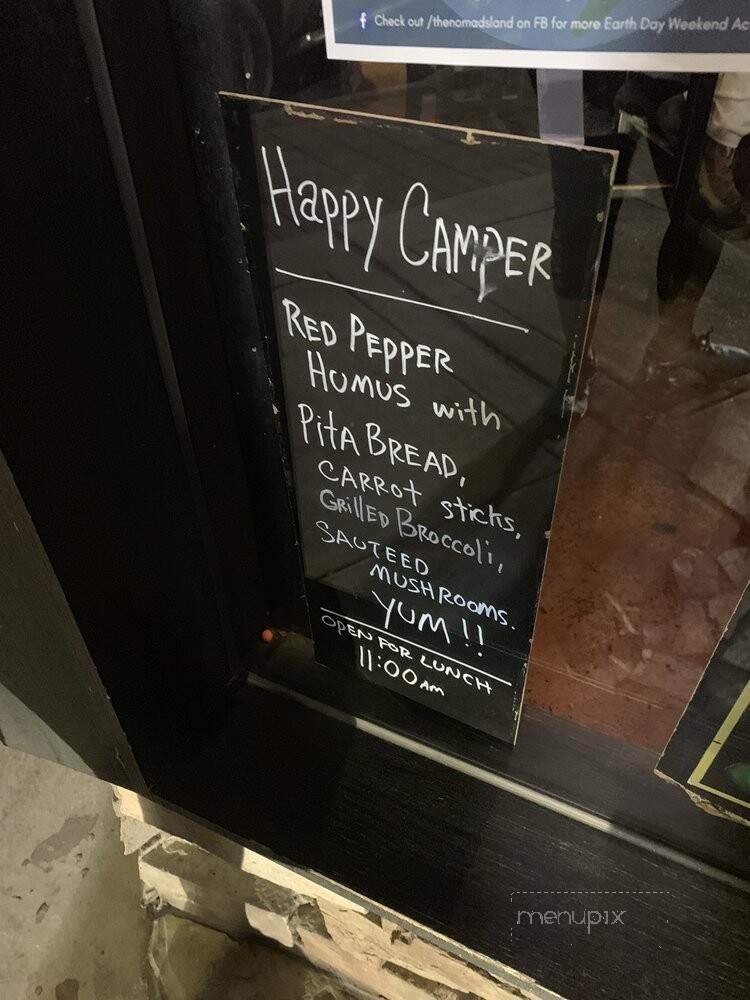 f Check out /thenomadsland on FB for more Earth Day Weekend Ac
Happy CAMPER
RED PEPPER
HUMUS with
PitA BREAD,
CARROt sticks,
GRillED BROCColi,
SAUTEED
MUSHROOMS.
YUM!!
OPEN FOR LUNCH
11:00 AM
menupix